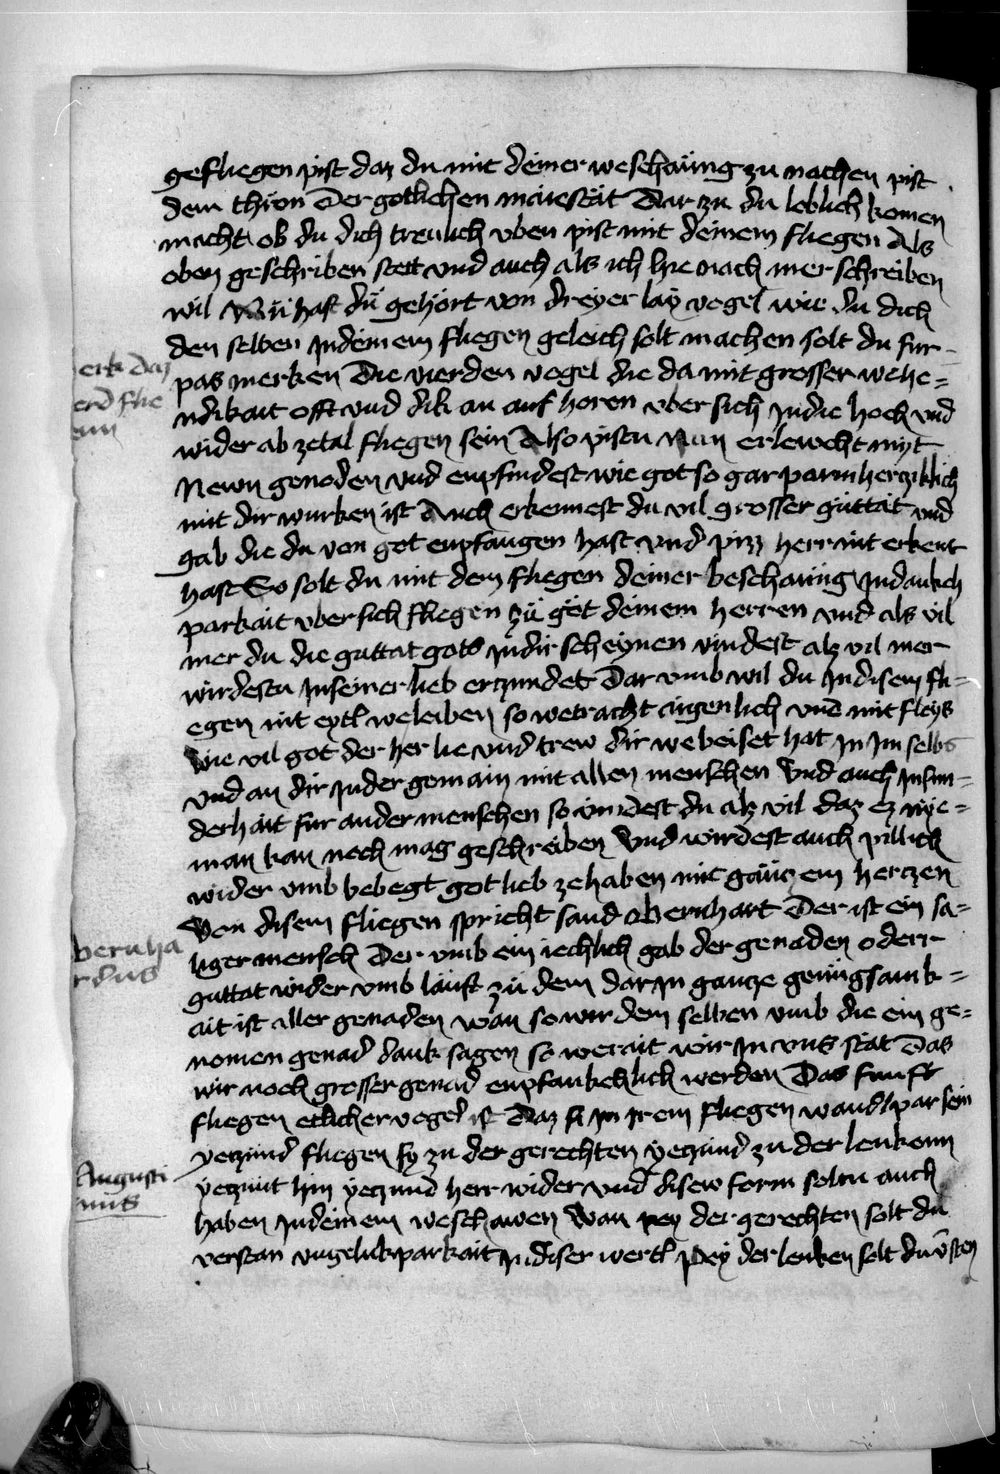 gefliegen pist daz du mit deiner weschaüng zu nachen pist
dem thron der gotlichen maiestät Dar zu du leblich komen
macht ob du dich treulich vben pist mit deinem fliegen Als
oben geschriben stett vnd auch als ich hie nach mer schreiben
wil Nü hast dü gehört von dreyer lay vogel wie du dich
den selben jn deinem fliegen geleich solt machen solt du fur-
pas merken Die vierden vogel die da mit grosser wehe=
ndikait offt vnd dik an auf horen vber sich jn die hoch vnd
wider ab zetal fliegen sein Also pistu Nun erlewcht mit
Newn genoden vnd enpfindest wie got so gar parmherczklich
mit dir wurken ist Auch erkennest du vil grosser güttät vnd
gab die du von got enpfangen hast vnd pizz herr nit erkent
hast So solt du mit dem fliegen deiner beschaung jn dankch
parkait vber sich fliegen zü got deinem herren vnd als vil
mer du die guttat gots jn dir scheynen vindest alz vil mer
wirdestu jn seiner lieb erczundet Dar vmb wil du jn disem fli=
egen nit eytl weleiben so wetracht aigenlich vnd mit fleys
Wie vil got der her lie vnd trew dir webeiset hat jn jm selbs
vnd an dir jn der gemain mit allen menschen Vnd auch jn sun=
derhait fur ander menschen so vindest du alz vil daz ez nye=
man kan noch mag geschreiben Vnd wirdest auch pillich
wider vmb bebegt got lieb ze haben mit ganczem herczen
Von disem fliegen spricht sand Bernhart Der ist ein sa=
liger mensch Der vmb ein iechlich gab der genaden oderr
guttat wider vmb läuft zü dem dar jn gancze genügsamk=
ait ist aller genaden wan so wir dem selben vmb die ein ge=
nomen genad dank sagen so werait wir jn vns stat Das
wir noch grosser genad enpfankchlich werden Das funft
fliegen etlicher vogel ist Daz si jn irem fliegen wandlpar sein
yeczund fliegen sy zu der gerechten yeczund zu der lenken
yeczunt hin yeczund herr wider vnd disew form soltu auch
haben jn deinem weschawen Wan pey der gerechten solt du
verstan vngelukparkait jn diser werlt Pey der lenken solt du v̄sten
erk daz
erd flie
enn
Bernha
rdus
Augusti
nus